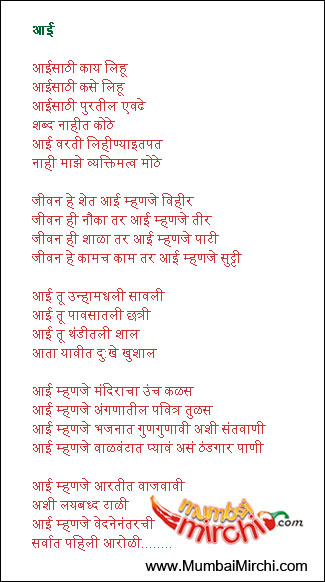 आई
आईसाठी काय लिहू
आईसाठी कसे लिहू
आईसाठी पुरतील एवढे
शब्द नाहीत कोठे
आई वरती लिहीण्याइतपत
नाही माझे व्यक्तिमत्व मोठे
जीवन हे शेत आई म्हणजे विहीर
जीवन ही नौका तर आई म्हणजे तीर
जीवन ही शाळा तर आई म्हणजे पाटी
जीवन हे कामच काम तर आई म्हणजे सुट्टी
आई तू उन्हामधली सावली
आई तू पावसातली छत्री
आई तू थंडीतली शाल
आता यावीत दु:खे खुशाल
आई म्हणजे मंदिराचा उंच कळस
आई म्हणजे अंगणातील पवित्र तुळस
आई म्हणजे भजनात गुणगुणावी अशी संतवाणी
आई म्हणजे वाळवंटात प्यावं असं ठंडगार पाणी
आई म्हणजे आरतीत वाजवावी
अशी लयबध्द टाळी
आई म्हणजे वेदनेनंतरची
सर्वात पहिली आरोळी........
mumbai
mirchi.com
www.MumbaiMirchi.com